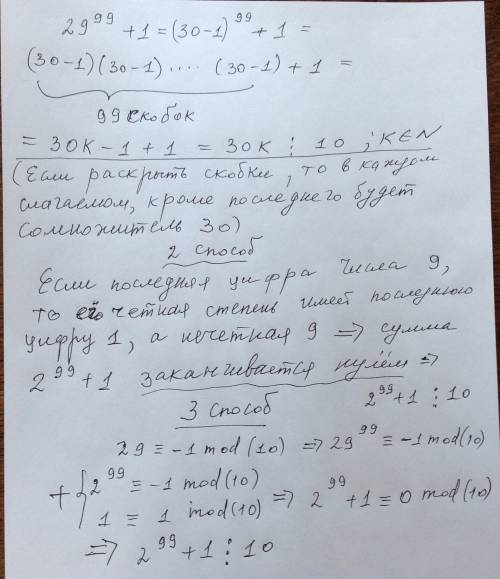 29⁹⁹ + 1 = (30-1)⁹⁹ + 1 =
(30-1)(30-1) .... (30-1) + 1 =
99 скобок
= 30K - 1 + 1 = 30K ⋮ 10 ; K∈N
(Если раскрыть скобки, то в каждом
слагаемом, кроме последнего будет
сомножитель 30)
2 способ
Если последняя цифра числа 9,
то его четная степень имеет последнюю
цифру 1, а нечетная 9 => сумма
2⁹⁹ + 1 заканчивается нулём =>
2⁹⁹ + 1 ⋮ 10
3 способ
29 ≡ -1 mod (10) => 29⁹⁹ ≡ -1 mod(10)
+ { 2⁹⁹ ≡ -1 mod(10)
1 ≡ 1 mod(10) => 2⁹⁹ + 1 ≡ 0 mod(10)
=> 2⁹⁹ + 1 ⋮ 10